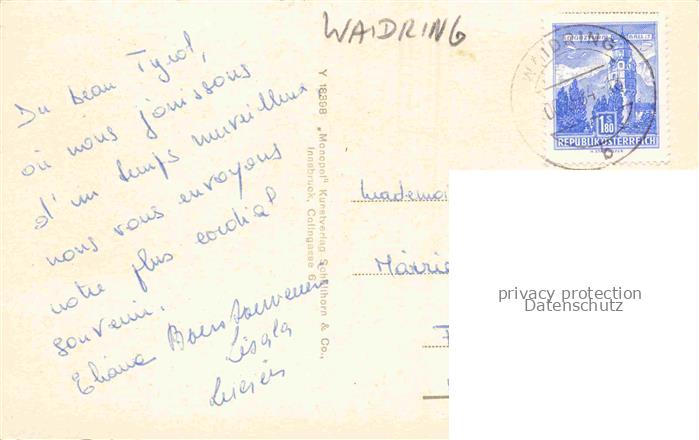 WAIDRING
Du beau Tyrol,
où nous jouissons
d'un temps merveilleux
nous vous envoyons
notre plus cordial
souvenir.
Eliane
Lucien
Y 18398 „Monopol" Kunstverlag Schöllhorn & Co.,
Innsbruck, Colingasse 6
WAIDRING
1.80
REPUBLIK ÖSTERREICH
privacy protection
Datenschutz